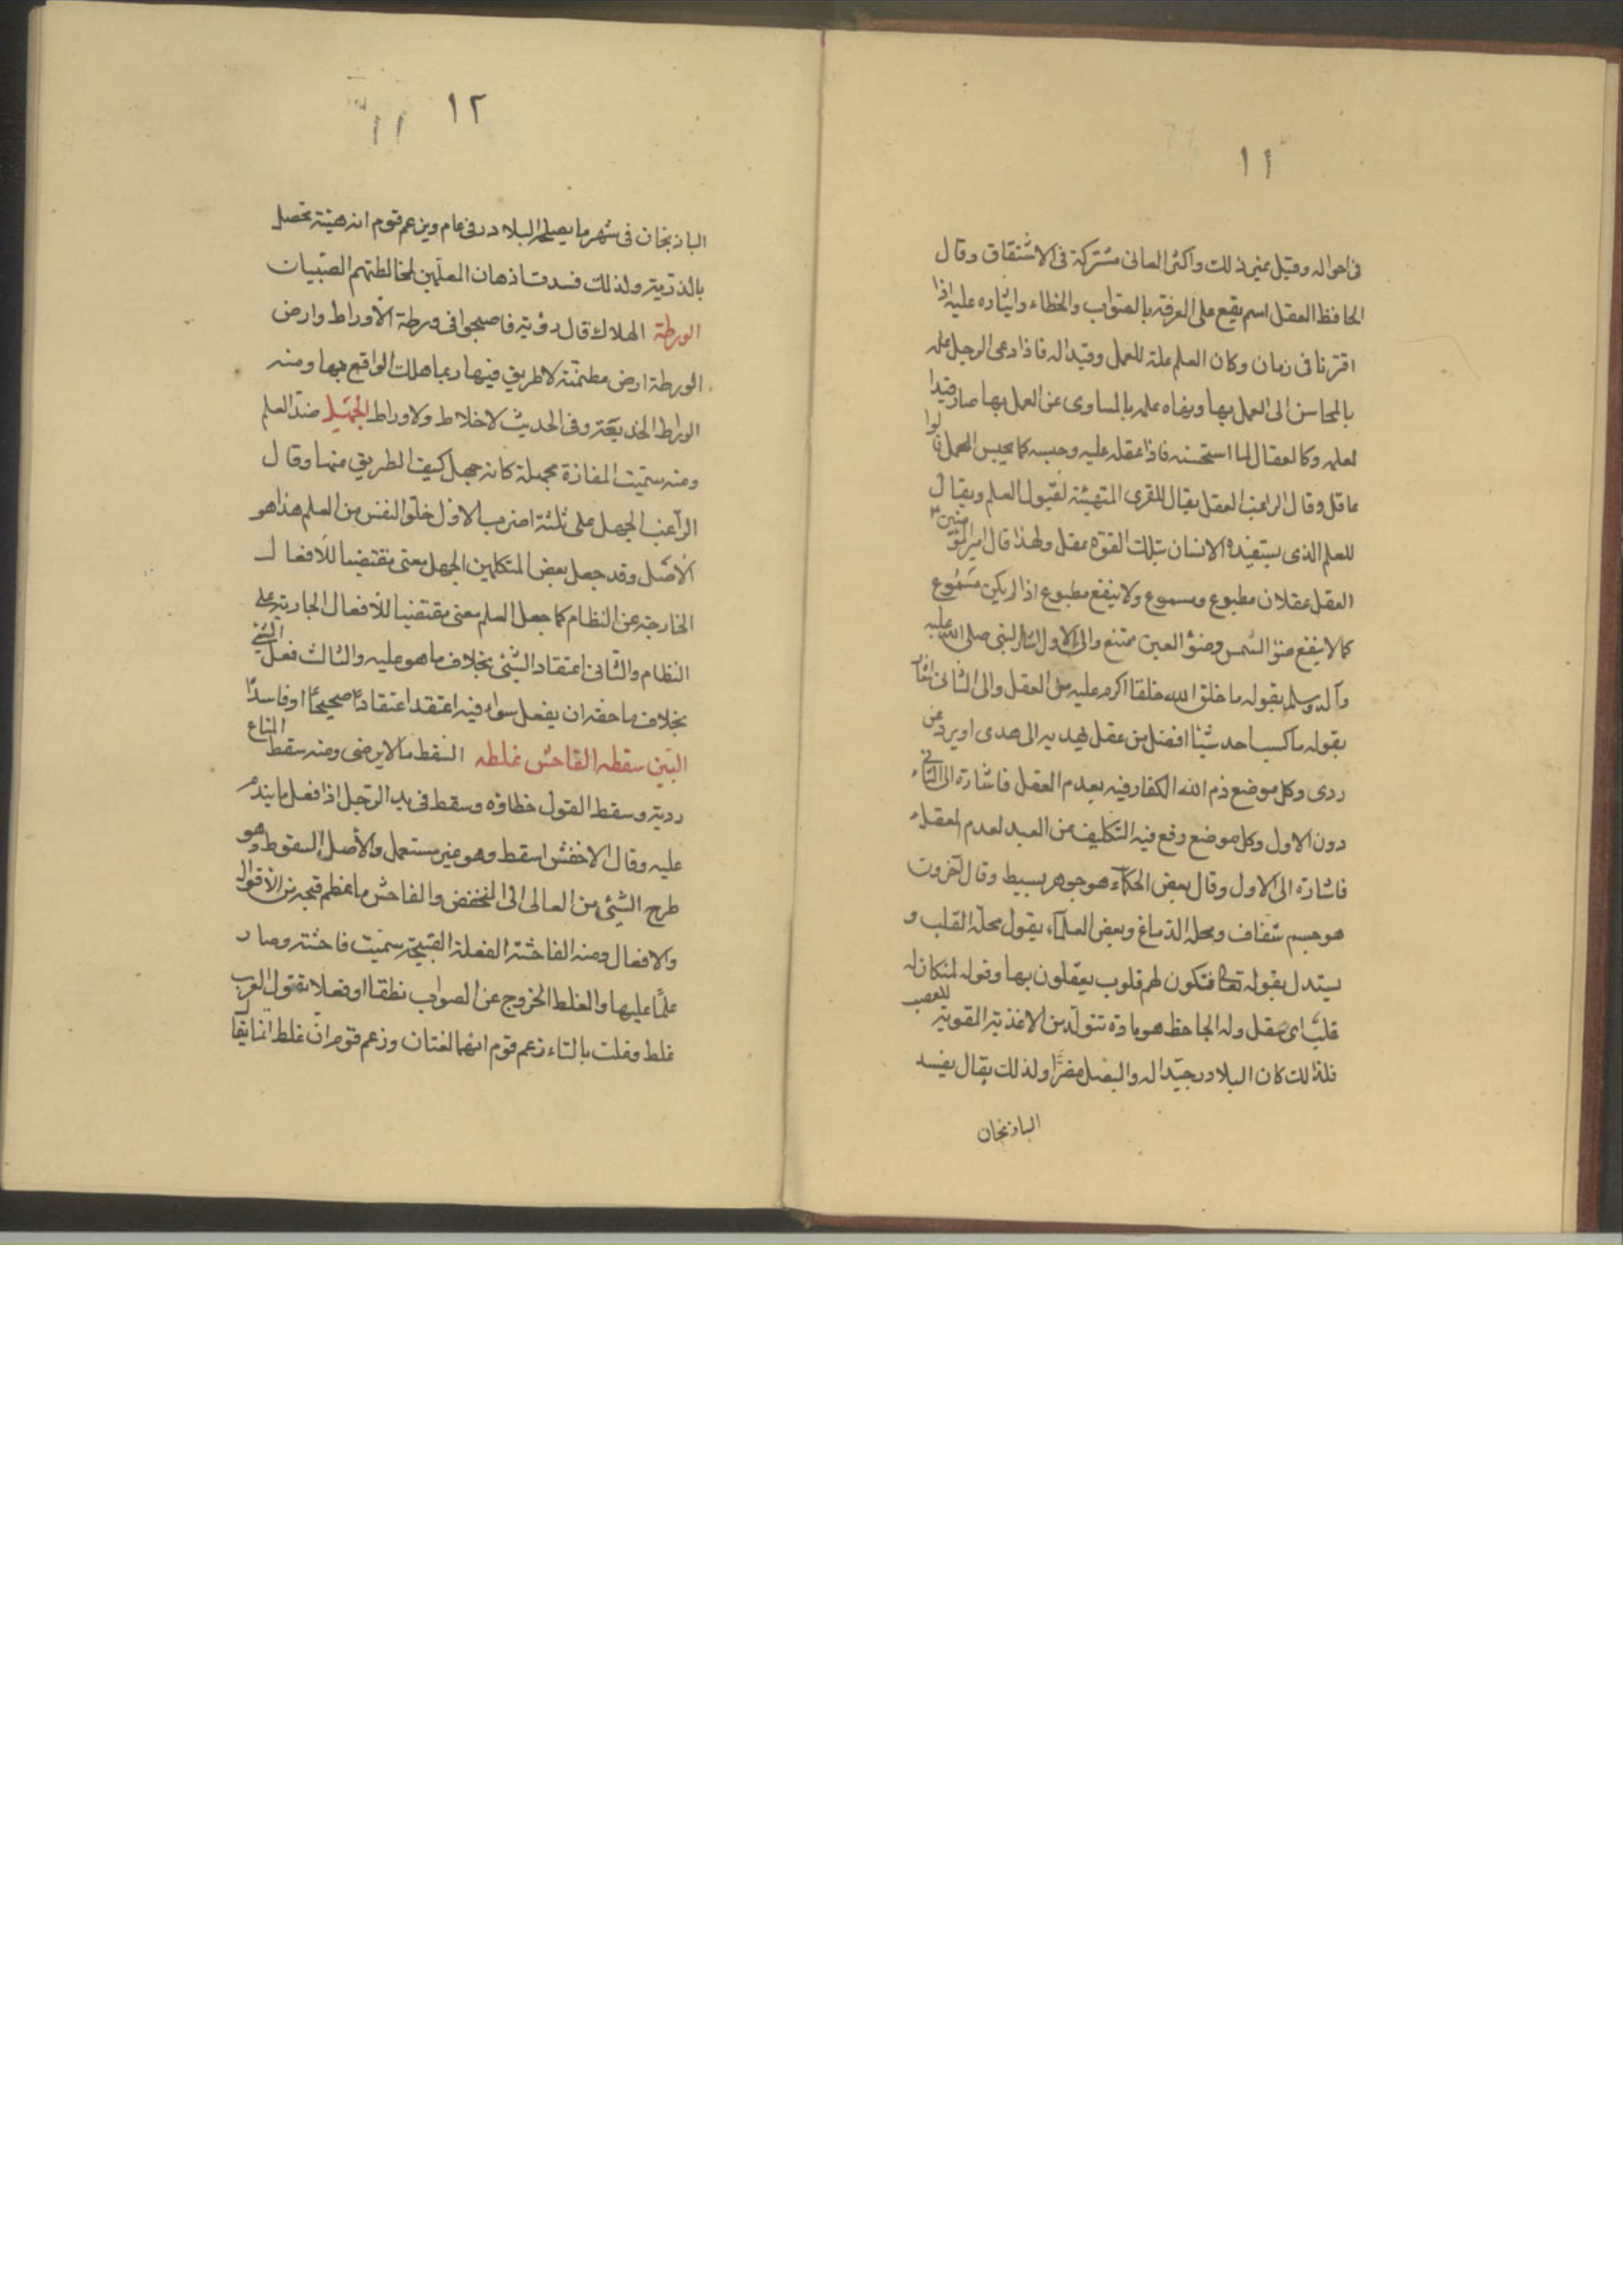 ١١
فى احواله وقيل غير ذلك واكثر المعانى مشتركة فى الاشتقاق وقال
الحافظ العقل اسم يقع على المعرفة بالصواب والخطاء وايثاره عليه اذا
اقترنا فى زمان وكان العلم علة للعمل وقيدا له فاذا دعى الرجل علمه
بالمحاسن الى العمل بها ونهاه علمه بالمساوى عن العمل بها صار قيدا
لعلمه وكالعقال لما استحسنه فاذا عقله عليه وحبسه كما يحبس الجمل قالوا
عاقل وقال الراغب العقل يقال للقوى المتهيئة لقبول العلم ويقال
للعلم الذى يستفيده الانسان بتلك القوة عقل ولهذا قال امير المؤمنين
العقل عقلان مطبوع ومسموع ولا ينفع مطبوع اذا لم يكن مسموع
كما لا ينفع ضؤ الشمس وضؤ العين ممتنع والى الاول اشار النبى صلى الله عليه
وآله وسلم بقوله ما خلق الله خلقا اكرم عليه من العقل والى الثانى اشار
بقوله ما كسب احد شيئا افضل من عقل يهديه الى هدى او يرده عن
ردى وكل موضع ذم الله الكفار فيه بعدم العقل فاشارة الى الثانى
دون الاول وكل موضع رفع فيه التكليف عن العبد لعدم العقل
فاشارة الى الاول وقال بعض الحكماء هو جوهر بسيط وقال آخرون
هو جسم شفاف ومحله الدماغ وبعض العلماء يقول محله القلب و
يستدل بقوله تعالى فتكون لهم قلوب يعقلون بها وقوله لمن كان له
قلب اى عقل وله الجاحظ هو مادة تتولد من الاغذية المقوية للعصب
فلذلك كان البلادر جيدا له والبصل مضرا ولذلك يقال يفسد
الباذنجان
١٢
١١
الباذنجان فى شهر ما يصلح البلادر فى عام ويزعم قوم انه هيئة تحصل
بالدرية ولذلك فسدت اذهان المعلمين لمخالطتهم الصبيان
الورطة الهلاك قال رؤية فاصبحوا فى ورطة الأوراط وارض
الورطة ارض مطمئنة لا طريق فيها ربما هلك الواقع بها ومنه
الوراط الخديعة وفى الحديث لا خلاط ولا وراط الجهل ضد العلم
ومنه سميت المفازة مجهلة كانه جهل كيف الطريق منها وقال
الراغب الجهل على ثلثة اضرب الاول خلو النفس من العلم هذا هو
الأصل وقد جعل بعض المتكلمين الجهل معنى مقتضيا للأفعال
الخارجة عن النظام كما جعل العلم معنى مقتضيا للأفعال الجارية على
النظام والثانى اعتقاد الشئ بخلاف ما هو عليه والثالث فعل الشئ
بخلاف ما حقه ان يفعل سواء فيه اعتقد اعتقادا صحيحا او فاسدا
البين سقطه الفاحش غلطه السقط ما لا يرضى ومنه سقط المتاع
رديه وسقط القول خطاؤه وسقط فى يد الرجل اذا فعل ما يندم
عليه وقال الاخفش اسقط وهو غير مستعمل والأصل السقوط وهو
طرح الشئ من العالى الى المنخفض والفاحش ما عظم قبحه من الأقوال
والافعال ومنه الفاحشة الفعلة القبيحة سميت فاحشة وصار
علما عليها والغلط الخروج عن الصواب نطقا او فعلا تقول العرب
غلط وغلت بالتاء زعم قوم انهما لغتان وزعم قوم ان غلط انما يقال